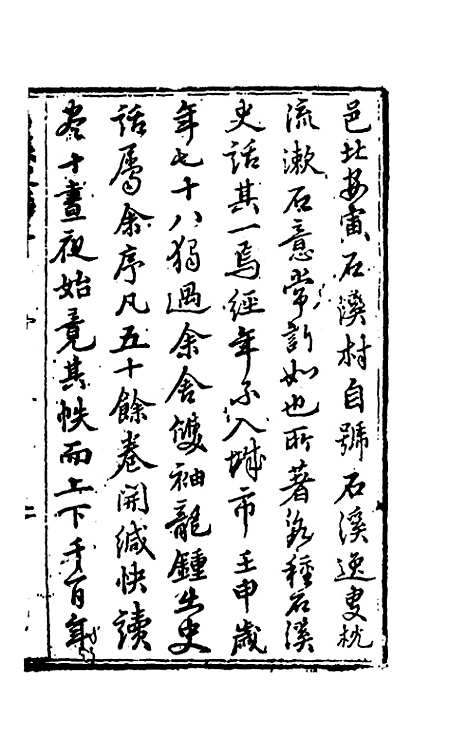 邑北安寅石溪村自號石溪逸叟枕
流漱石意常訢如也所著多種石溪
史話其一焉經年不入城市壬申歲
年七十八獨過余舍雙袖龍鍾出史
話屬余序凡五十餘卷開緘快讀
盡十晝夜始竟其帙而上下千百年